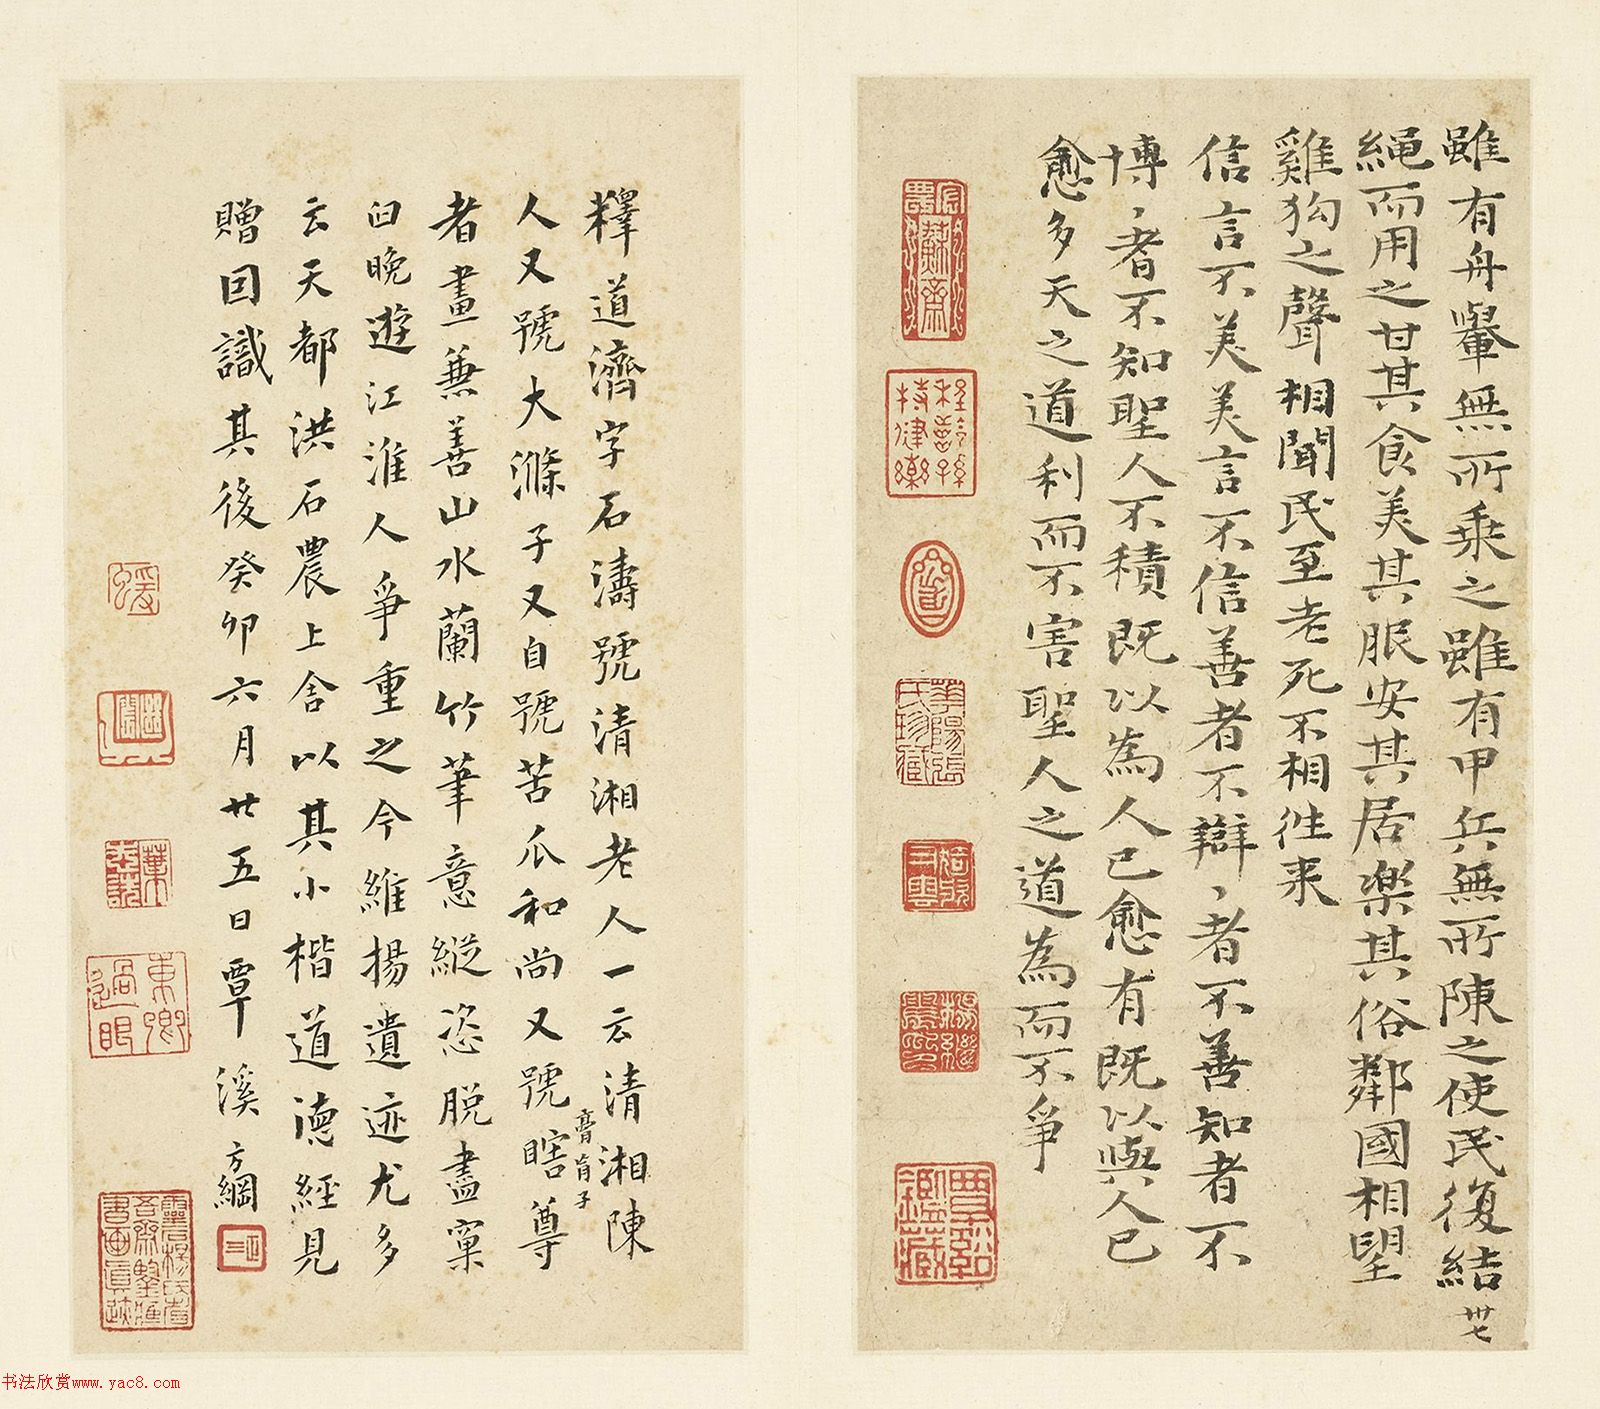 雖有舟轝無所乘之雖有甲兵無所陳之使民復結
卅七
繩而用之甘其食美其服安其居樂其俗鄰國相望
雞狗之聲相聞民至老死不相徃来
信言不美美言不信善者不辯、者不善知者不
博、者不知聖人不積既以為人已愈有既以與人已
愈多天之道利而不害聖人之道為而不爭
蘇齋
華陽張氏珍藏
鑑藏
釋道濟字石濤號清湘老人一云清湘陳
人又號大滌子又自號苦瓜和尚又號瞎尊
膏肓子
者畫兼善山水蘭竹筆意縱恣脱盡窠
臼晚遊江淮人爭重之今維揚遺迹尤多
云天都洪石農上舍以其小楷道德經見
贈回識其後癸卯六月廿五日覃溪方綱
東卿過眼
書法欣赏www.yac8.com